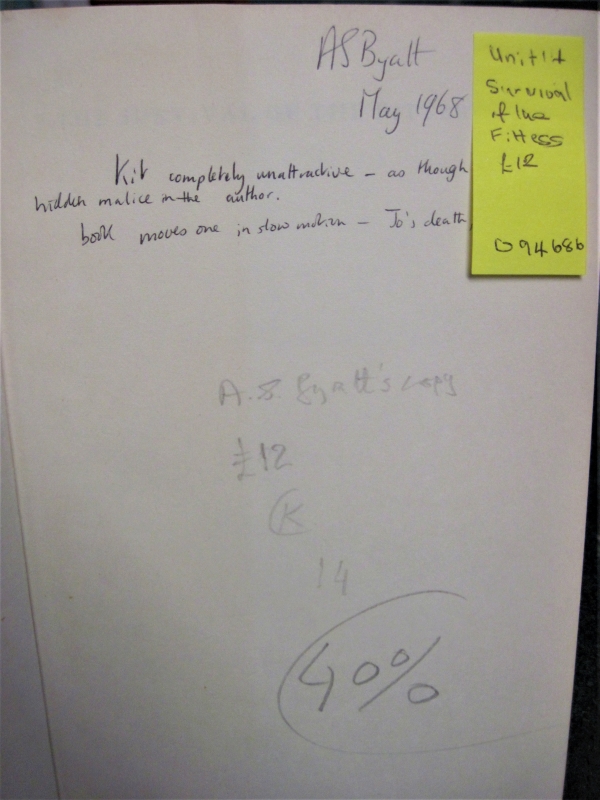 AS Byatt
May 1968
Kit completely unattractive – as though
hidden malice in the author.
book moves one in slow motion – Jo's death,
Unit 14
Survival
of the
Fittess
£12
D94686
A.S. Byatt's copy
£12
K
14
40%